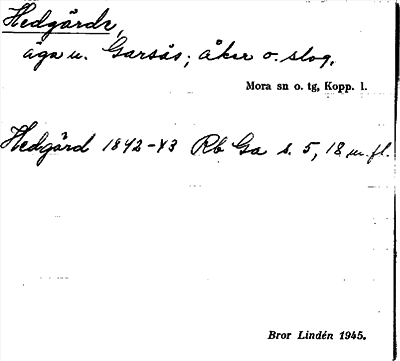 Hedgårds,
äga u. Garsås; åker o. slog.
Mora sn o. tg, Kopp. l.
Hedgård 1842-43 Rb Ga s. 5, 18 m. fl.
Bror Lindén 1945.